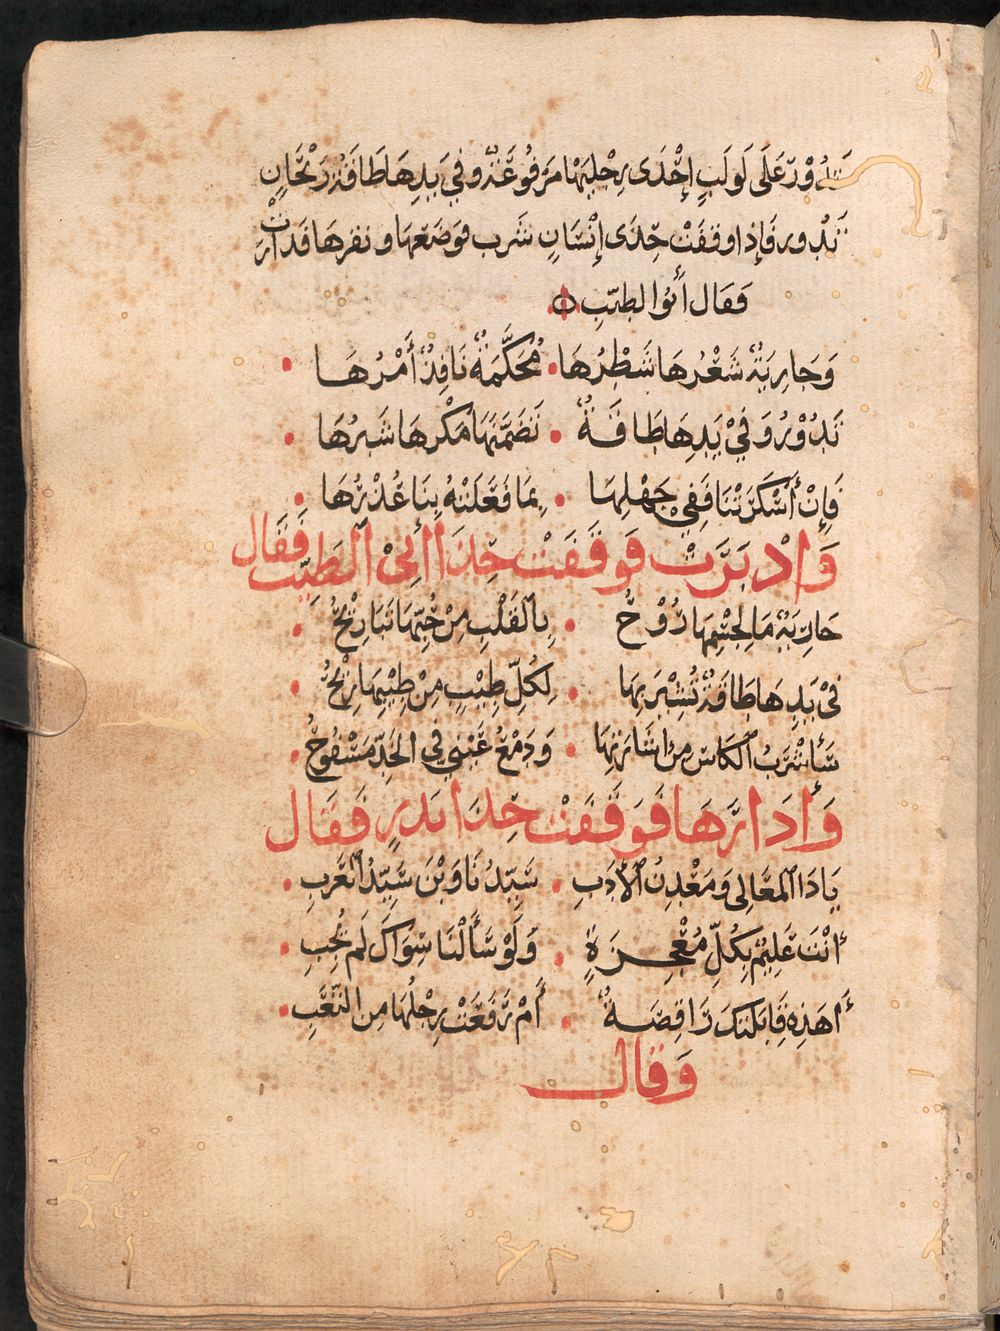 تَدُوْرُ عَلَى لَولَبٍ إِحْدَى رِجْلَيْهَا مَرفُوعَةٌ وفي يَدِهَا طَاقَةُ رَيْحَانٍ
تَدُور فَإِذا وقفَتْ حِذَى إِنْسَانٍ شرب فوَضَعها ونقرها فَدَارَتْ
فَقَال أَبُوا لطيّبِ
وَجَارِيَةٌ شَعْرُهَا شَطْرُهَا • مُحَكَّمَةٌ نَافِذٌ أَمْرُهَا •
تَدُوْرُ وَفيْ يَدِهَا طَاقَةٌ • تَضَمَّنَهَا مَكْرهَا شَبرُهَا •
فَإِنْ أَسْكَرَتْنَا فَفِيْ جَهْلِهَا • بِمَا فَعَلَتْهُ بِنَا عُذْرُهَا •
وَادِيرَتْ فَوَقَفَتْ حِذَا أَبىْ الطَيِّبِ فَقَال
جَارِيَةٌ مَا لِجِسْمِهَا رُوْحُ • بِالقَلْبِ مِنْ حُبِّهَا تَبَارِيْحُ •
فيْ يَدِهَا طَاقَةٌ تُشِيْرُ بِهَا • لِكُلِّ طِيْبٍ مِنْ طِيْبِهَا رِيْحُ •
سَأشْرَبُ الكَاسَ مِن اشَارَتِهَا • وَدَمْعُ عَيْنيْ في الخَدِّ مَسْفُوحُ •
وَأَدَارَهَا فَوَقَفَتْ حِذَا بَدرٍ فَقَال
يَاذَا المعَالِى وَمَعْدِنُ الأَدَبِ • سَيِّدُنَا وَبْنَ سَيِّدُ العَرَبِ •
أَنْتَ عَلِيْمٌ بِكُلِّ مُعْجِزَةٍ • وَلَوْ سَأَلْنَا سِوَاكَ لَم يُجِبِ •
أَهَذِهِ قَابَلَتْكَ رَاقِصَةٌ • أَمْ رَفَعَتْ رِجْلَهَا مِن التَّعَبِ •
وَقَال